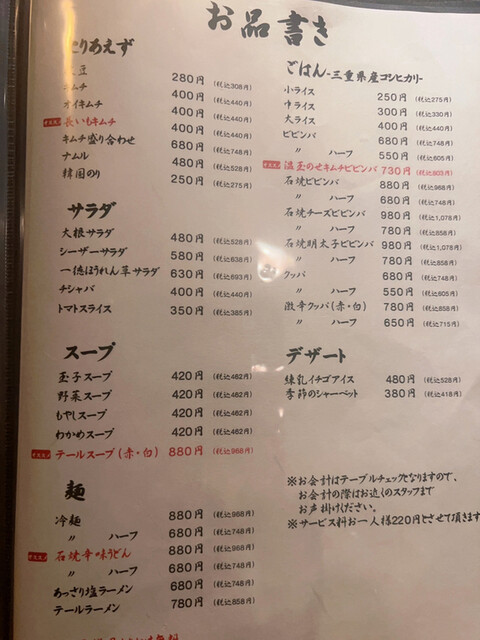 お品書き
とりあえず
豆 280円 (税込308円)
キムチ 400円 (税込440円)
オイキムチ 400円 (税込440円)
オススメ 長いもキムチ 400円 (税込440円)
キムチ盛り合わせ 680円 (税込748円)
ナムル 480円 (税込528円)
韓国のり 250円 (税込275円)
サラダ
大根サラダ 480円 (税込528円)
シーザーサラダ 580円 (税込638円)
一徳ほうれん草サラダ 630円 (税込693円)
チシャバ 400円 (税込440円)
トマトスライス 350円 (税込385円)
スープ
玉子スープ 420円 (税込462円)
野菜スープ 420円 (税込462円)
もやしスープ 420円 (税込462円)
わかめスープ 420円 (税込462円)
オススメ テールスープ(赤・白) 880円 (税込968円)
麺
冷麺 880円 (税込968円)
〃 ハーフ 680円 (税込748円)
オススメ 石焼辛味うどん 880円 (税込968円)
〃 ハーフ 680円 (税込748円)
あっさり塩ラーメン 680円 (税込748円)
テールラーメン 780円 (税込858円)
ごはん-三重県産コシヒカリ-
小ライス 250円 (税込275円)
中ライス 300円 (税込330円)
大ライス 400円 (税込440円)
ビビンバ 680円 (税込748円)
〃 ハーフ 550円 (税込605円)
オススメ 温玉のせキムチビビンバ 730円 (税込803円)
石焼ビビンバ 880円 (税込968円)
〃 ハーフ 680円 (税込748円)
石焼チーズビビンバ 980円 (税込1,078円)
〃 ハーフ 780円 (税込858円)
石焼明太子ビビンバ 980円 (税込1,078円)
〃 ハーフ 780円 (税込858円)
クッパ 680円 (税込748円)
〃 ハーフ 550円 (税込605円)
激辛クッパ(赤・白) 780円 (税込858円)
〃 ハーフ 650円 (税込715円)
デザート
練乳イチゴアイス 480円 (税込528円)
季節のシャーベット 380円 (税込418円)
※お会計はテーブルチェックとなりますので、
お会計の際はお近くのスタッフまで
お声掛けください。
※サービス料お一人様220円とさせて頂きます